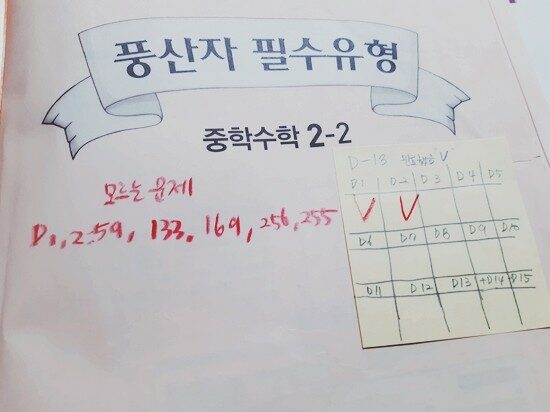 풍산자 필수유형
중학수학 2-2
모르는 문제
D1, 2:59, 133, 169, 256, 255
D-13 "V"
D1 D-2 D3 D4 D5
V V
D6 D7 D8 D9 D10
D11 D12 D13 +D14 D15